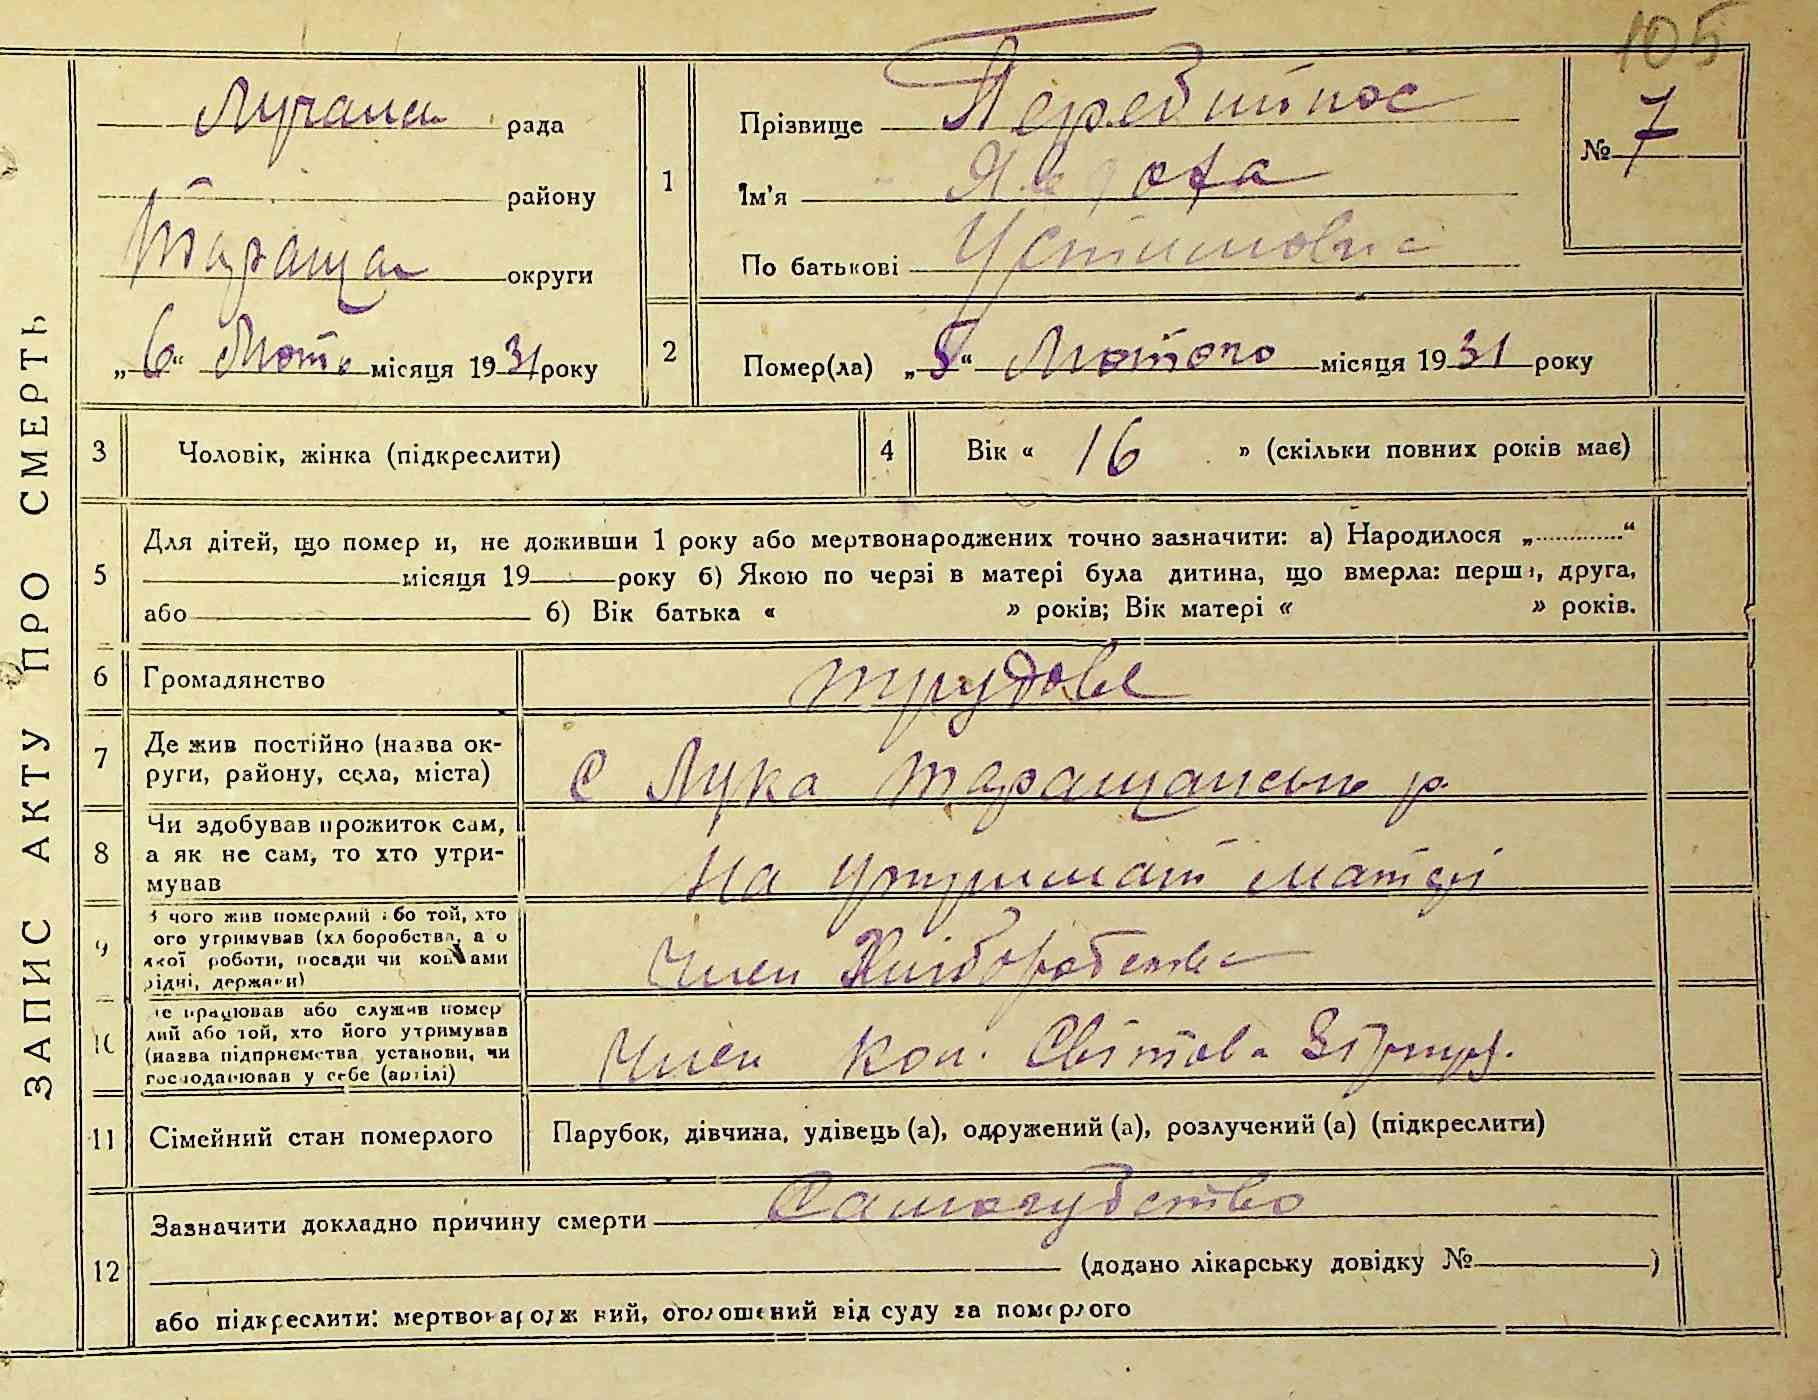 105
ЗАПИС АКТУ ПРО СМЕРТЬ
Лучана рада
району
Тараща округи
„6“ Лютo місяця 1931 року
1
Прізвище Перебийнос
Ім'я
По батькові Устимовна
№ 7
2
Помер(ла) „5“ Лютого місяця 1931 року
3 Чоловік, жінка (підкреслити)
4 Вік « 16 » (скільки повних років має)
5
Для дітей, що помер и, не доживши 1 року або мертвонароджених точно зазначити: а) Народилося „............“
місяця 19 року б) Якою по черзі в матері була дитина, що вмерла: перша, друга,
або б) Вік батька « » років; Вік матері « » років.
6 Громадянство трудове
7 Де жив постійно (назва ок-
руги, району, села, міста)
с Лука Таращанськ р.
8 Чи здобував прожиток сам,
а як не сам, то хто утри-
мував
на утриманї матері
9 З чого жив померлий або той, хто
ого утримував (хліборобства, а о
якої роботи, посади чи коштами
рідні, держави)
Член Хліборобства
10 е працював або служив помер
лий або той, хто його утримував
(назва підприємства, установи, чи
господарював у себе (артілі)
Член кол. Світова
11 Сімейний стан померлого Парубок, дівчина, удівець (а), одружений (а), розлучений (а) (підкреслити)
12
Зазначити докладно причину смерти Самогубство
(додано лікарську довідку № )
або підкреслити: мертвонароджений, оголошений від суду за померлого